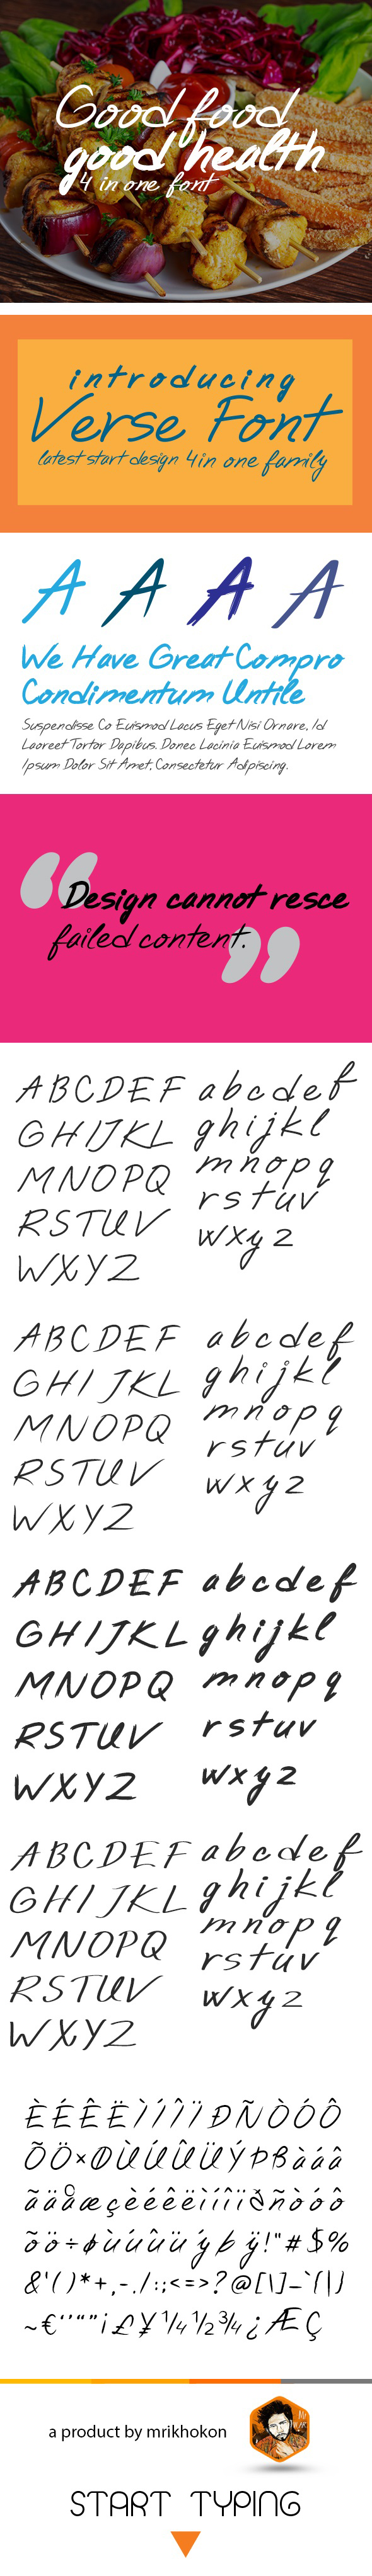 Good food
good health
4 in one font
introducing
Verse Font
latest start design 4 in one family
A A A A
We Have Great Compro
Condimentum Untile
Suspendisse Co Euismod Lacus Eget Nisi Ornare, Id
Laoreet Tortor Dapibus. Donec Lacinia Euismod Lorem
Ipsum Dolor Sit Amet, Consectetur Adipiscing.
“Design cannot resce
failed content.”
A B C D E F a b c d e f
G H I J K L g h i j k l
M N O P Q m n o p q
R S T U V r s t u v
W X Y Z w x y z
A B C D E F a b c d e f
G H I J K L g h i j k l
M N O P Q m n o p q
R S T U V r s t u v
W X Y Z w x y z
A B C D E F a b c d e f
G H I J K L g h i j k l
M N O P Q m n o p q
R S T U V r s t u v
W X Y Z w x y z
A B C D E F a b c d e f
G H I J K L g h i j k l
M N O P Q m n o p q
R S T U V r s t u v
W X Y Z w x y z
È É Ê Ë Ì Í Î Ï Ð Ñ Ò Ó Ô
Õ Ö × Ø Ù Ú Û Ü Ý Þ ß à á â
ã ä å æ ç è é ê ë ì í î ï ð ñ ò ó ô
õ ö ÷ ø ù ú û ü ý þ ÿ ! " # $ %
& ' ( ) * + , - . / : ; < = > ? @ [ \ ] _ ` { | }
~ € ‘ ’ “ ” ¡ £ ¥ ¼ ½ ¾ ¿ Æ Ç
a product by mrikhokon
START TYPING